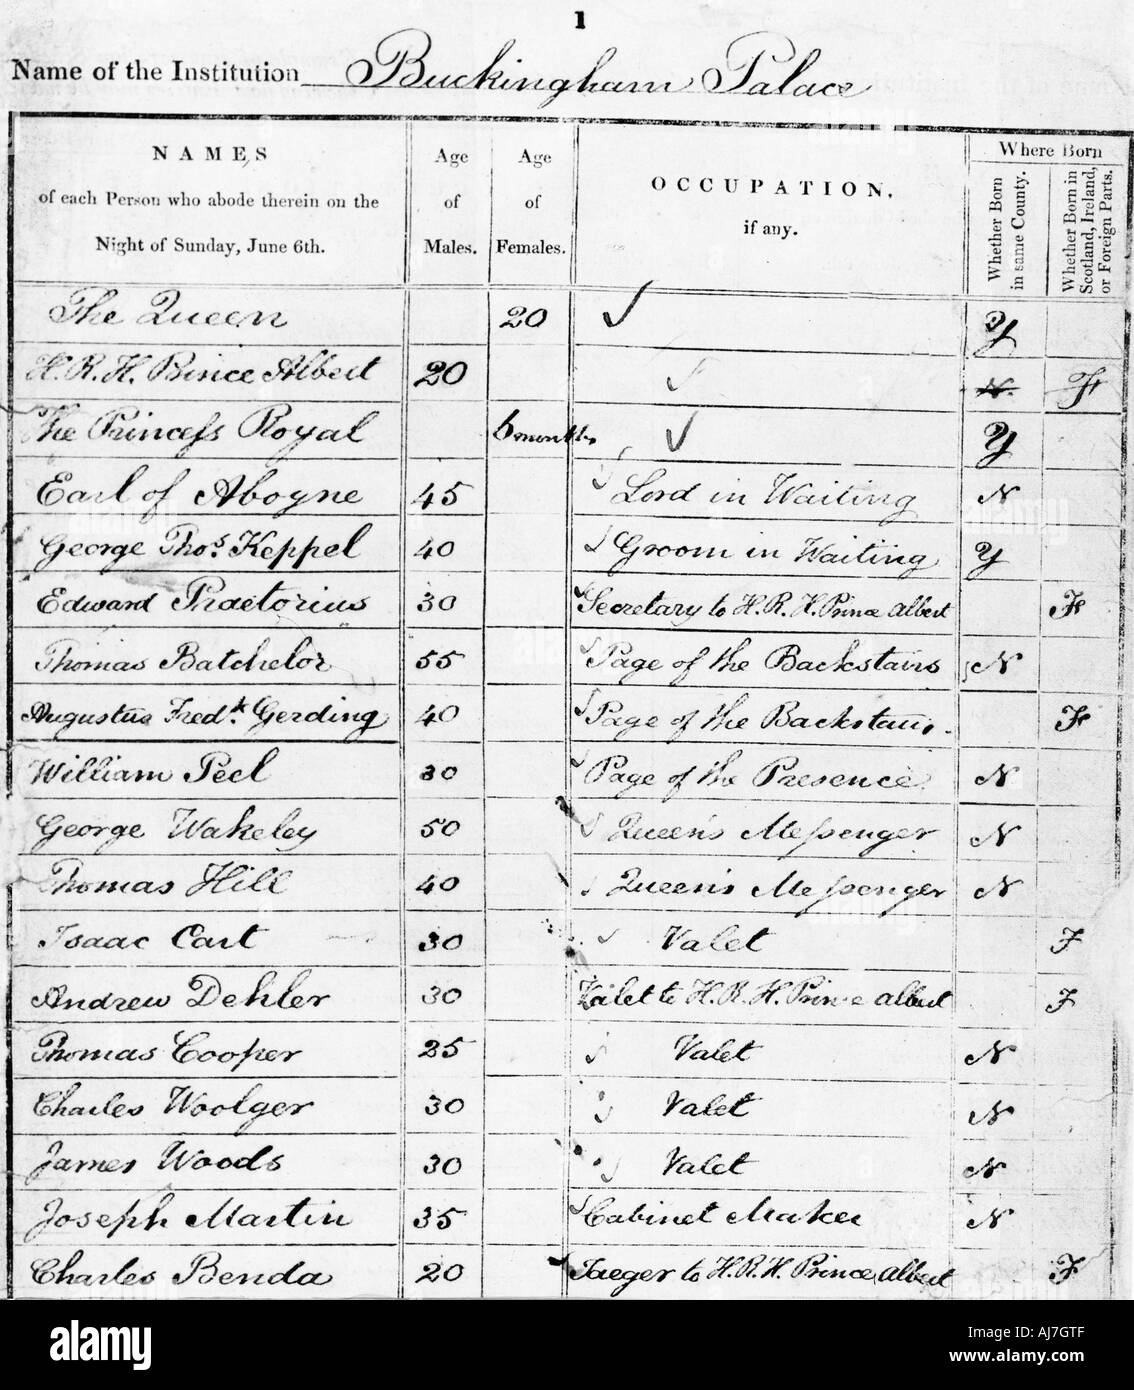 1
Name of the Institution Buckingham Palace
NAMES
of each Person who abode therein on the
Night of Sunday, June 6th.
Age
of
Males.
Age
of
Females.
OCCUPATION,
if any.
Where Born
Whether Born
in same County.
Whether Born in
Scotland, Ireland,
or Foreign Parts.
The Queen 20 Y
H. R. H. Prince Albert 20 N. F
The Princess Royal 6 months Y
Earl of Aboyne 45 Lord in Waiting N
George Thos. Keppel 40 Groom in Waiting Y
Edward Praetorius 30 Secretary to H. R. H. Prince Albert F
Thomas Batchelor 55 Page of the Backstairs N
Augustus Fredk. Gerding 40 Page of the Backstairs F
William Peel 30 Page of the Presence N
George Wakeley 50 Queen's Messenger N
Thomas Hill 40 Queen's Messenger N
Isaac Cart 30 Valet F
Andrew Dehler 30 Valet to H. R. H. Prince Albert F
Thomas Cooper 25 Valet N
Charles Woolger 30 Valet N
James Woods 30 Valet N
Joseph Martin 35 Cabinet Maker N
Charles Benda 20 Jaeger to H. R. H. Prince Albert F
alamy
Image ID: AJ7GTF
www.alamy.com